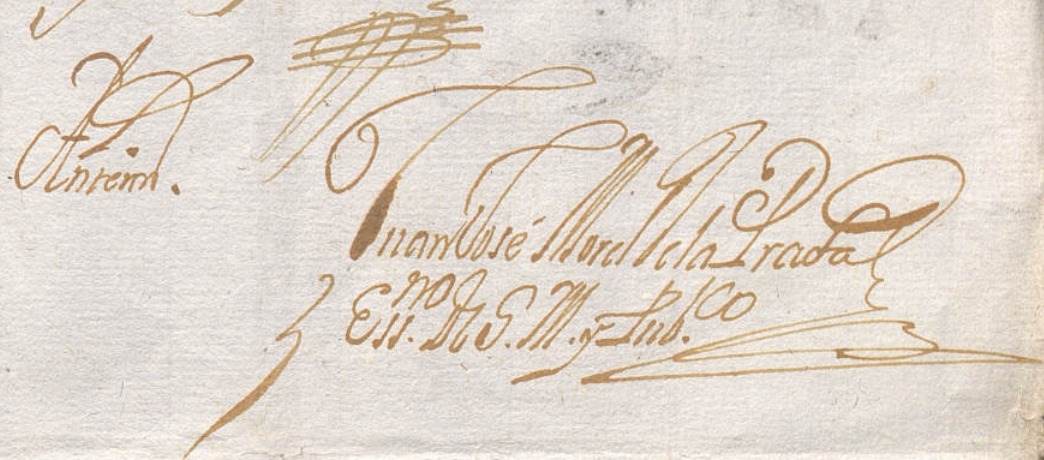 Antemi.
Juan José Morel de la Prada
Ess.no de S. M. y Pub.co